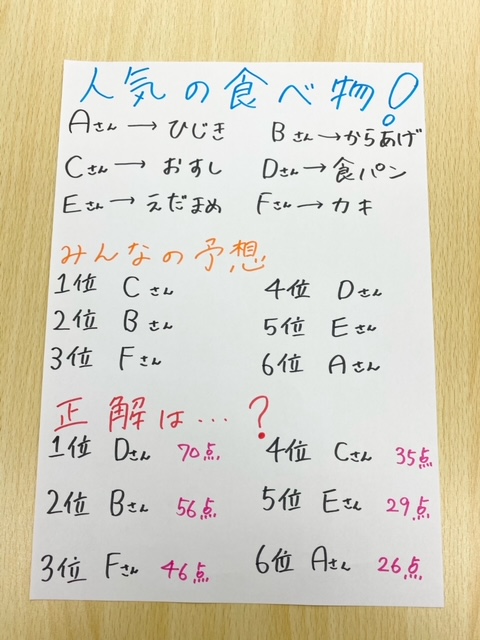 人気の食べ物！
Aさん→ひじき Bさん→からあげ
Cさん→おすし Dさん→食パン
Eさん→えだまめ Fさん→カキ
みんなの予想
1位 Cさん 4位 Dさん
2位 Bさん 5位 Eさん
3位 Fさん 6位 Aさん
正解は…？
1位 Dさん 70点 4位 Cさん 35点
2位 Bさん 56点 5位 Eさん 29点
3位 Fさん 46点 6位 Aさん 26点